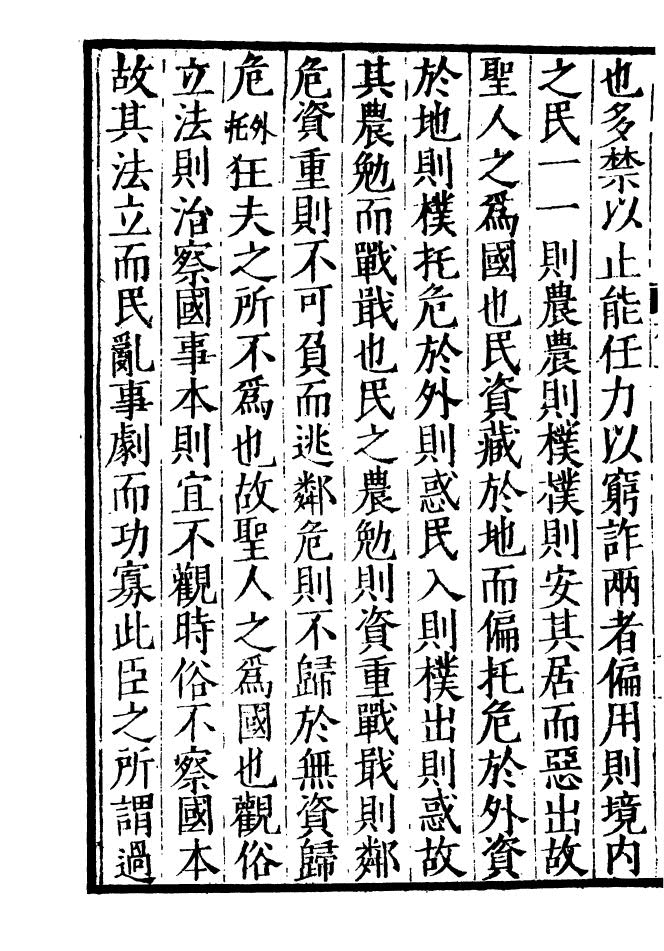 也多禁以止能任力以窮詐兩者偏用則境内
之民一一則農農則樸樸則安其居而惡出故
聖人之爲國也民資藏於地而偏托危於外資
於地則樸托危於外則惑民入則樸出則惑故
其農勉而戰戢也民之農勉則資重戰戢則鄰
危資重則不可負而逃鄰危則不歸於無資歸
危外托狂夫之所不爲也故聖人之爲國也觀俗
立法則治察國事本則宜不觀時俗不察國本
故其法立而民亂事劇而功寡此臣之所謂過